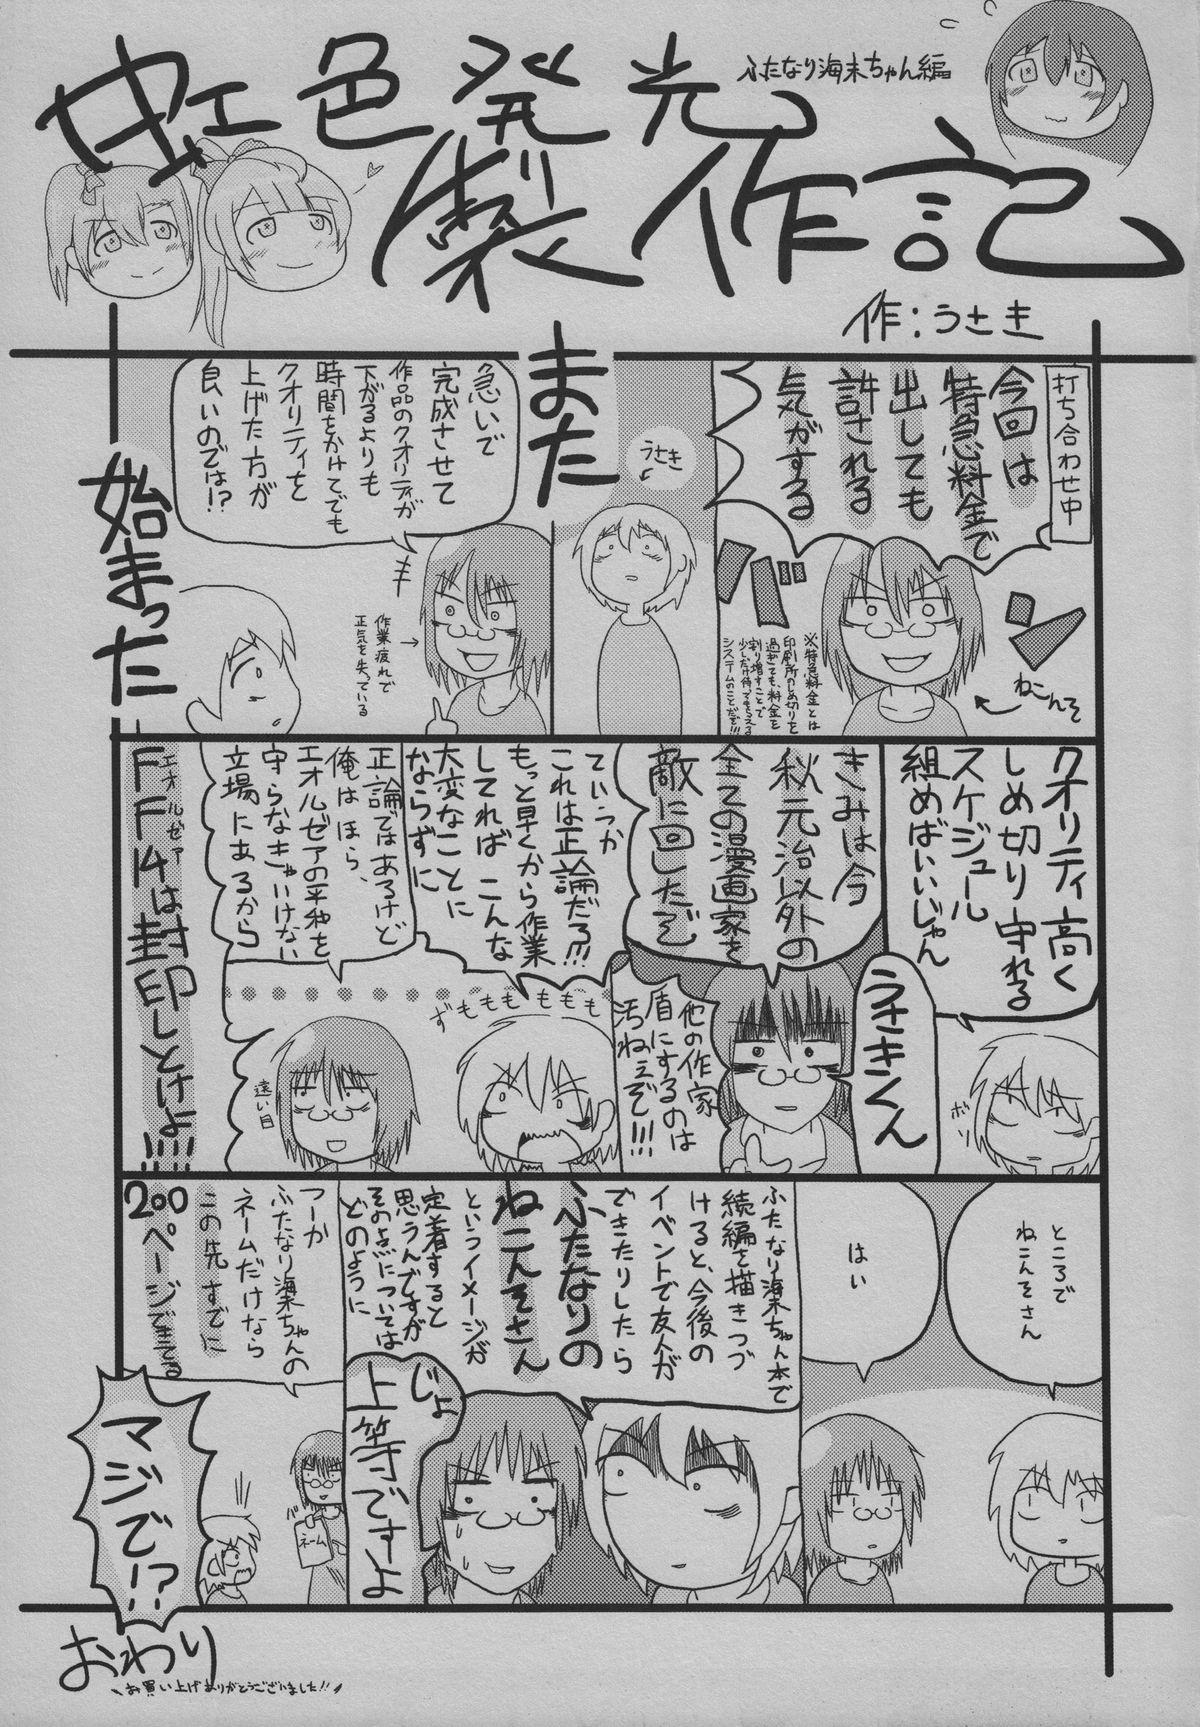 虹色発光。
製作記
ふたなり海未ちゃん編
作：うさき
打ち合わせ中
今回は
特急料金で
出しても
許される
気がする
バ
ン
ねこんそ
※特急料金とは
印刷所のしめ切りを
過ぎても、料金を
割り増すことで
少しだけ待ってもらえる
システムのことだぞ!!!
うさき
また
急いで
完成させて
作品のクオリティが
下がるよりも
時間をかけてでも
クオリティを
上げた方が
良いのでは!?
作業疲れで
正気を失っている
始まった
クオリティ高く
しめ切り守れる
スケジュール
組めばいいじゃん
ボソ
うさきくん
きみは今
秋元治以外の
全ての漫画家を
敵に回したぞ
他の作家
盾にするのは
汚ねえぞ!!!
ていうか
これは正論だろ!!!
もっと早くから作業
してれば こんな
大変なことに
ならずに
ずももももももも
正論ではあるけど
俺はほら、
エオルゼアの平和を
守らなきゃいけない
立場にあるから
遠い目
エオルゼア
FF14は封印しとけよ!!!!
ところで
ねこんそさん
はい
ふたなり海未ちゃん本で
続編を描きつづ
けると、今後の
イベントで友人が
できたりしたら
ふたなりの
ねこんそさん
というイメージが
定着すると
思うんですが
その点については
どのように
じょ
上等ですよ
つーか
ふたなり海未ちゃんの
ネームだけなら
この先すでに
200ページできてる
ネーム
マジで!?
おわり
お買い上げありがとうございました!!